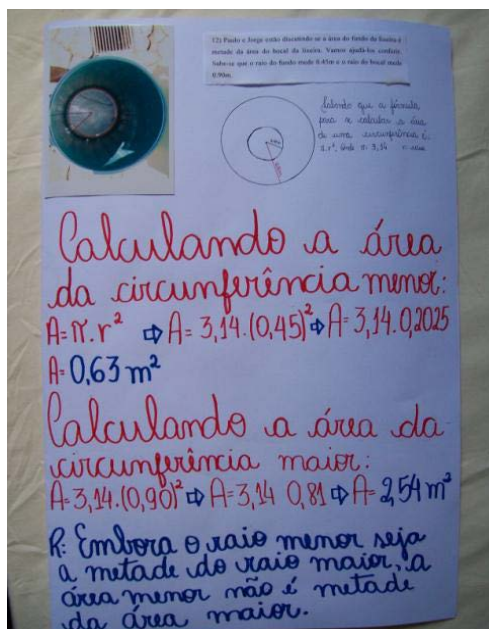 12) Paulo e Jorge estão discutindo se a área do fundo da lixeira é
metade da área do bocal da lixeira. Vamos ajudá-los conferir.
Sabe-se que o raio do fundo mede 0.45m e o raio do bocal mede
0.90m.
Sabendo que a fórmula
para se calcular a área
de uma circunferência é
π.r², onde π 3,14 r raio
Calculando a área
da circunferência menor:
A=π.r² ⇨ A= 3,14.(0,45)² ⇨ A= 3,14.0,2025
A= 0,63 m²
Calculando a área da
circunferência maior:
A=3,14.(0,90)² ⇨ A=3,14 0,81 ⇨ A= 2,54 m²
R: Embora o raio menor seja
a metade do raio maior, a
área menor não é metade
da área maior.